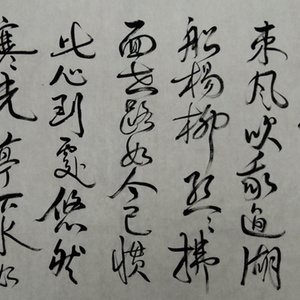 東风吹我过湖
船楊柳丝丝拂
面世路如今已惯
此心到處悠然
寒光亭下水如